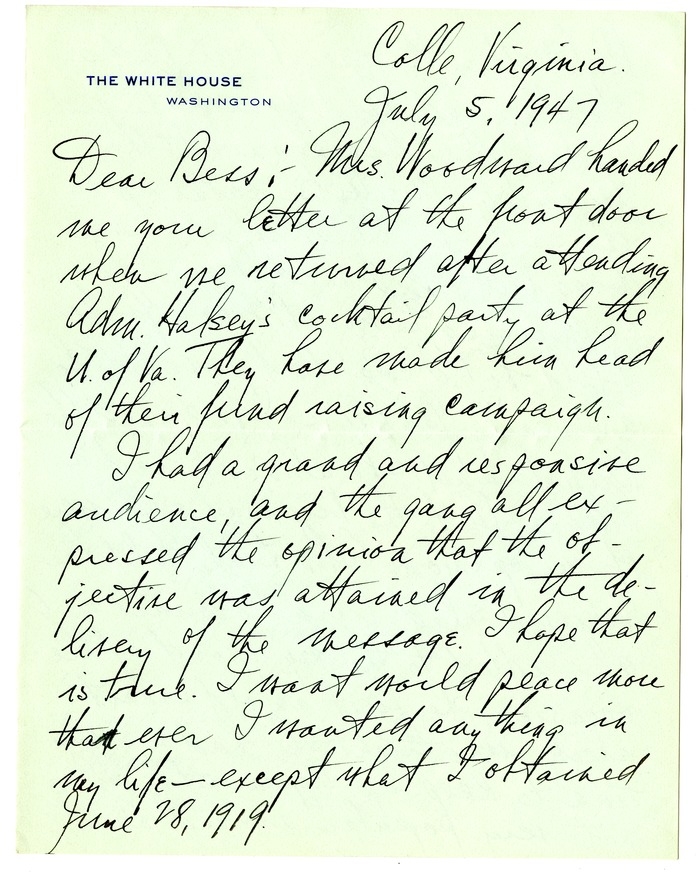 THE WHITE HOUSE
WASHINGTON
Colle, Virginia.
July 5, 1947
Dear Bess:- Mrs. Woodward handed
me your letter at the front door
when we returned after attending
Adm. Halsey's cocktail party at the
U. of Va. They have made him head
of their fund raising campaign.
I had a grand and responsive
audience, and the gang all ex-
pressed the opinion that the ob-
jective was attained in the de-
livery of the message. I hope that
is true. I want world peace more
than ever I wanted anything in
my life—except what I obtained
June 28, 1919.